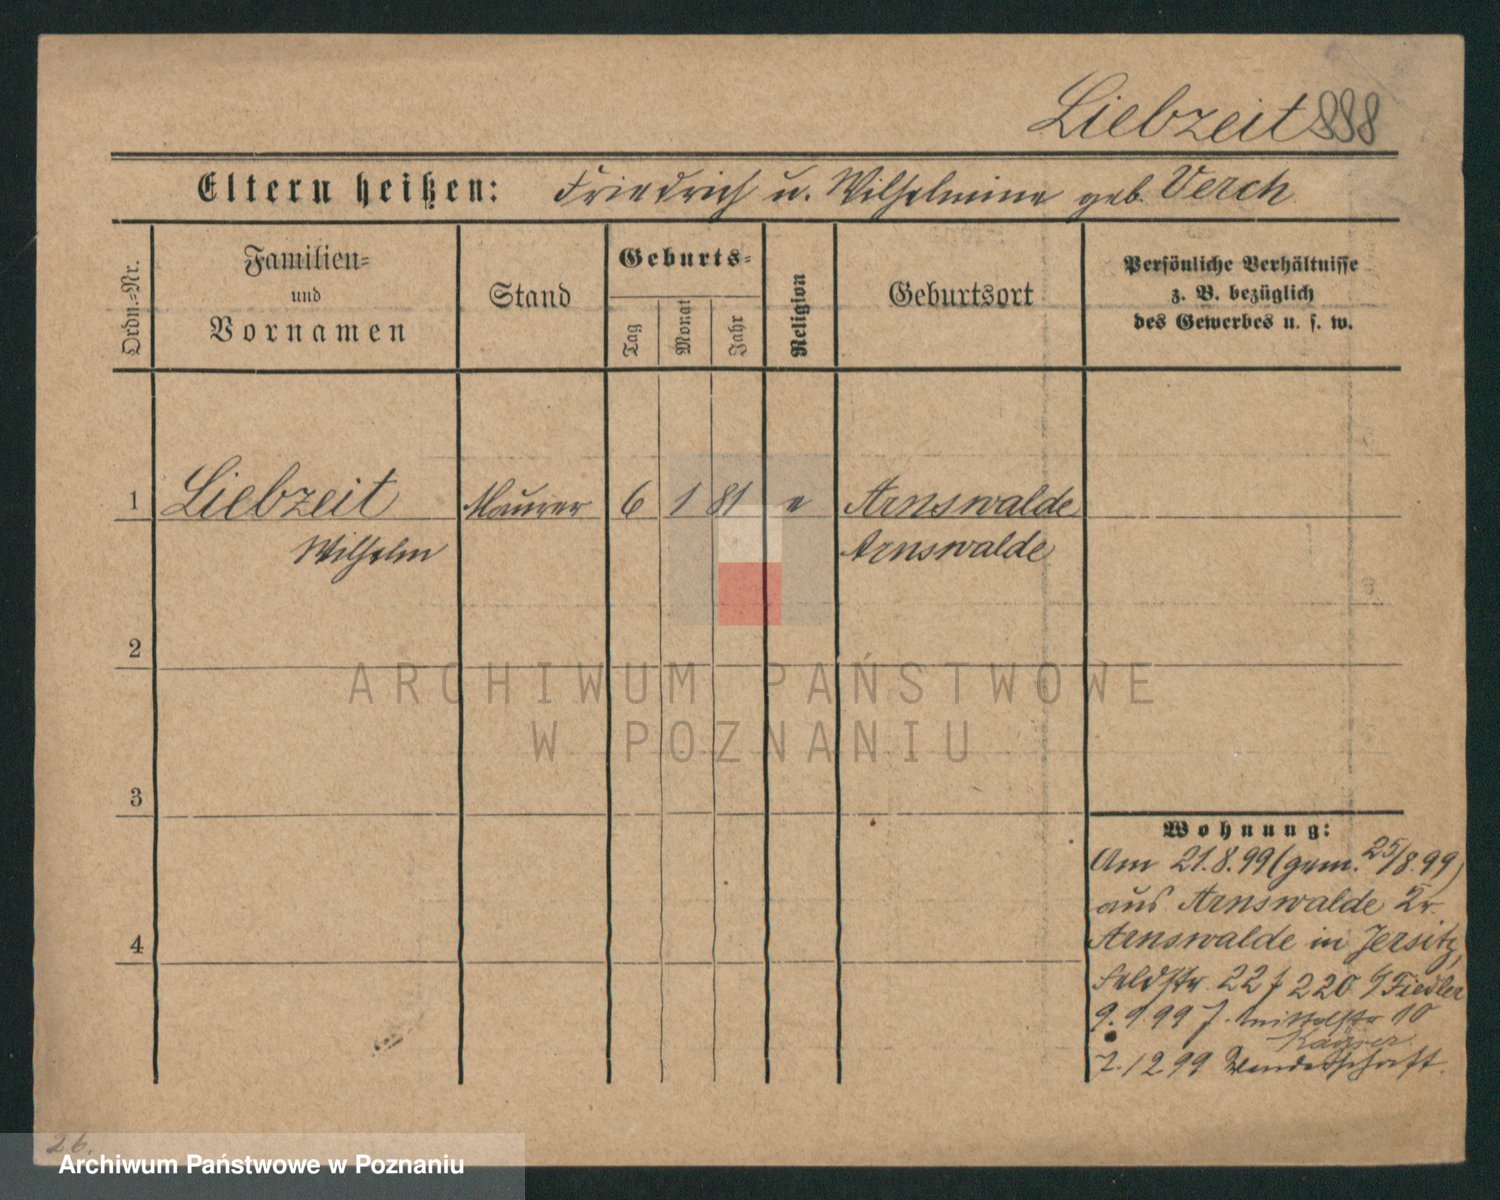 Liebzeit 888
Eltern heißen: Friedrich u. Wilhelmine geb. Verch
Ordn.-Nr.
Familien-
und
Vornamen
Stand
Geburts-
Tag
Monat
Jahr
Religion
Geburtsort
Persönliche Verhältnisse
z. B. bezüglich
des Gewerbes u. s. w.
1 Liebzeit Maurer 6 1 81 e Arnswalde
Wilhelm Arnswalde
2
ARCHIWUM PAŃSTWOWE
W POZNANIU
3
Wohnung:
Am 21.8.99 (gem. 25/8.99)
aus Arnswalde Kr.
4
Arnswalde in Jersitz,
Feldstr. 22 220 Fiedler
9.9.99 J. Mittelstr 10
Kayser
7.12 99 Wanderschaft.
26.
Archiwum Państwowe w Poznaniu